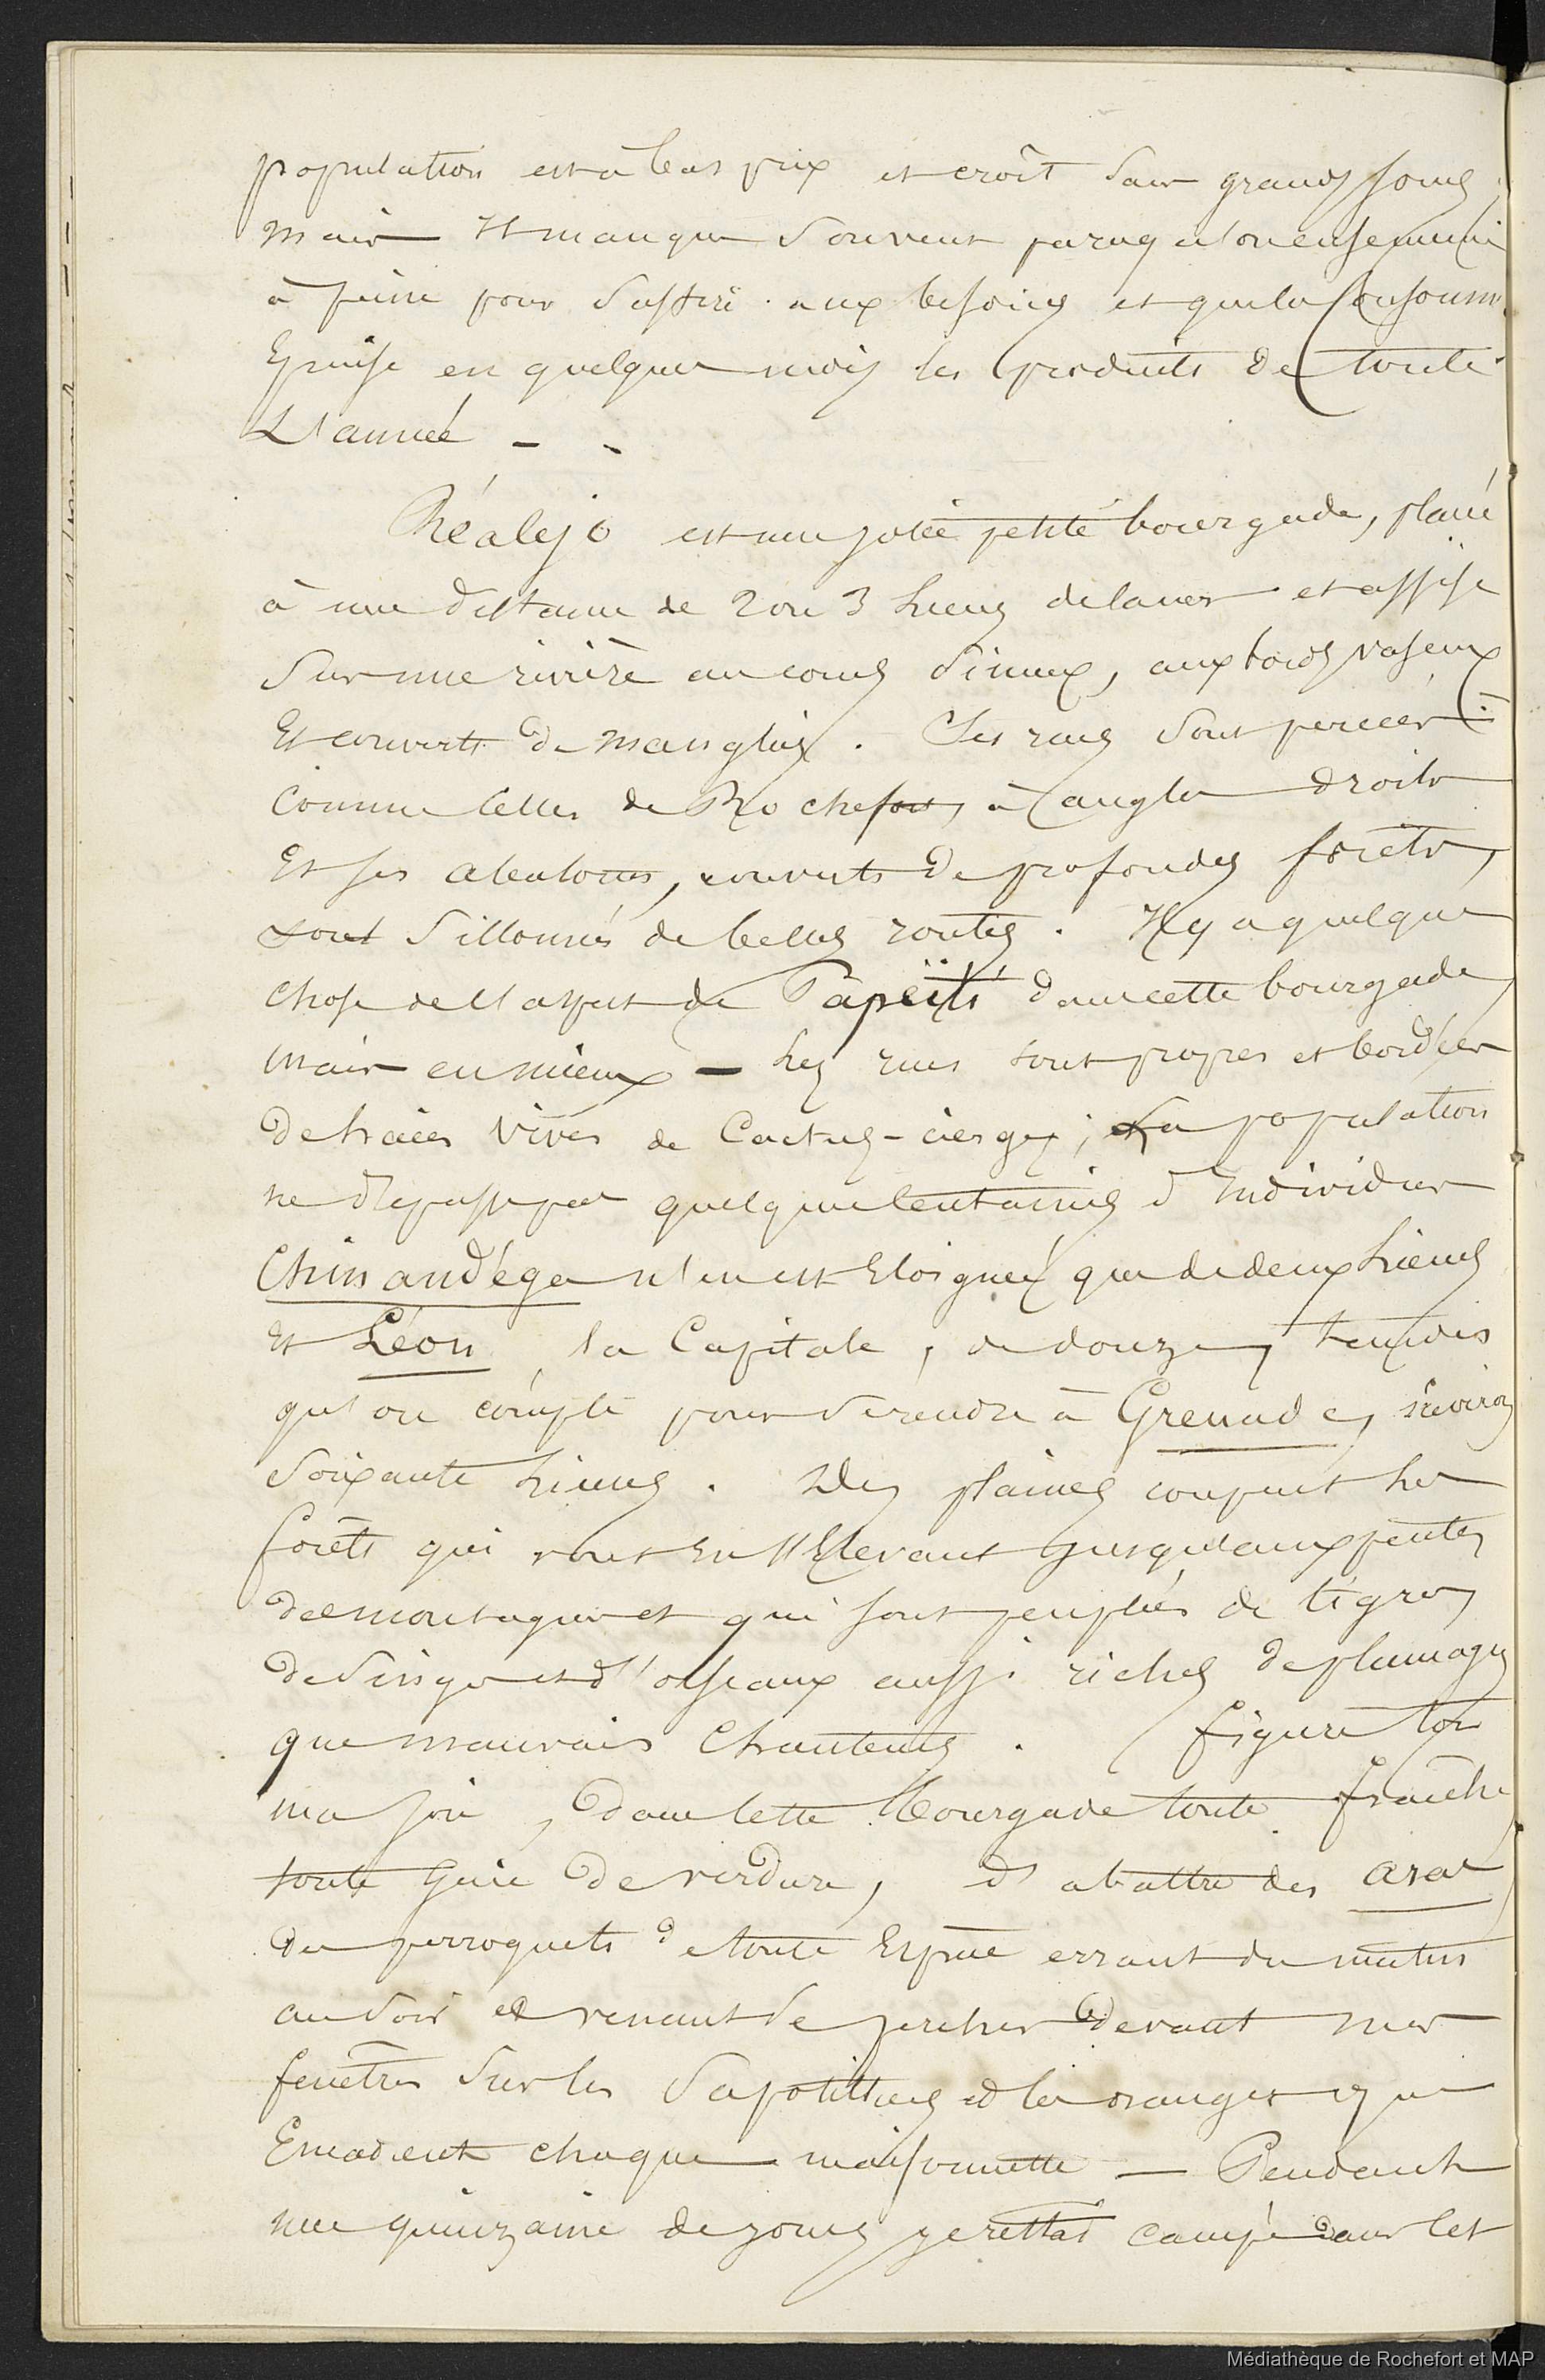 population est à bas prix et croît sans grands soins,
mais Il manque souvent parcequ'on ensemence
à peine pour suffire aux besoins et que la Consomm.
Épuise en quelques mois les produits de toute
L'année - -
Réalejo est une jolie petite bourgade, placée
à une distance de 2 ou 3 Lieues de la mer et assise
Sur une rivière au cours sinueux, aux bords vaseux
Et couverts de mangliers. Ses rues sont percées
Comme celles de Rochefort, à angles droits
Et ses alentours, couverts de profondes forêts,
sont sillonnés de belles routes. Il y a quelque
chose de l'aspect de Papéïti dans cette bourgade,
mais en mieux — Les rues sont propres et bordées
de haies vives de Cactus-cierges; La population
ne dépasse pas quelques centaines d'Individus
Chinandéga n'en est Eloignée que de deux Lieues
Et Léon, la Capitale, de douze, tandis
qu'on compte pour se rendre à Grenade, environ
soixante Lieues. Des plaines coupent les
forêts qui vont en s'Elevant jusqu'aux pentes
des montagnes et qui sont peuplées de tigres,
de singes et d'oiseaux aussi riches de plumages
que mauvais Chanteurs. figure toi
ma joie, dans cette bourgade toute fraîche
toute gaie de verdure, d'abattre des aras,
des perroquets de toute Espèce errant du matin
au soir et venant se percher devant mes
fenêtres sur les Sapotilliers et les orangers qui
Encadrent chaque maisonnette — Pendant
une quinzaine de jours je restai campé dans cet
Médiathèque de Rochefort et MAP